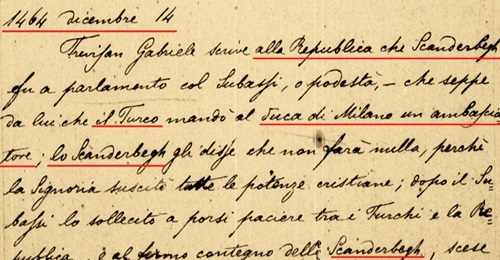 1464 dicembre 14
Trevisan Gabriele scrive alla Republica che Scanderbegh
fu a parlamento col Subassi, o podestà, - che seppe
da lui che il Turco mandò al Duca di Milano un ambascia
tore; lo Scanderbegh gli disse che non farà nulla, perchè
la Signoria suscitò tutte le potenze cristiane; dopo il Su-
bassi lo sollecitò a porsi paciere tra i Turchi e la Re-
pubblica, e al fermo contegno dello Scanderbegh, scese